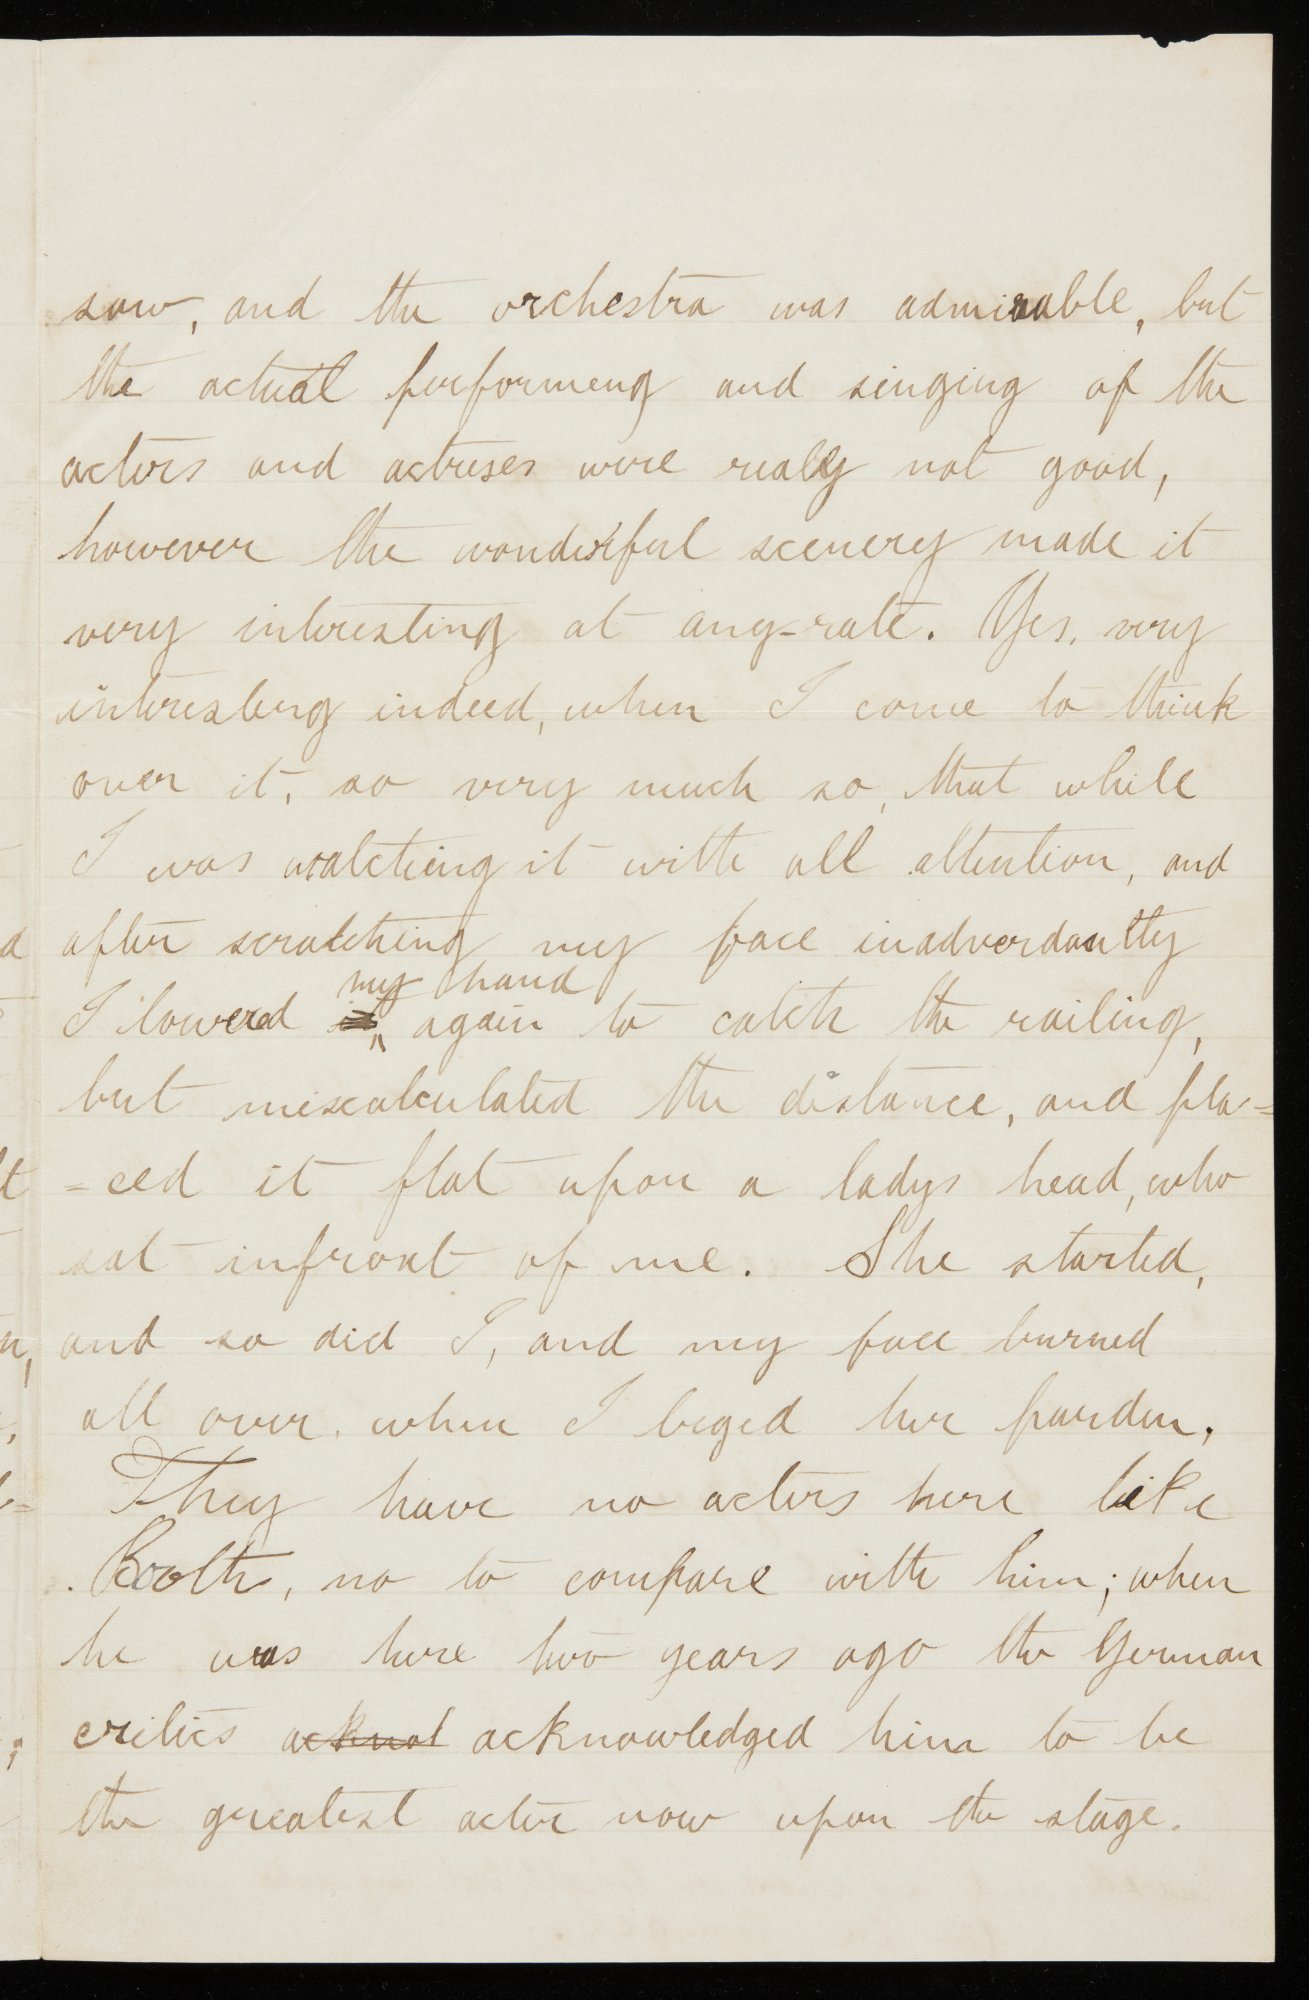 saw, and the orchestra was admirable, but
the actual performeng and singing of the
actors and actreses were realy not good,
however the wonderful scenery made it
very interesting at any-rate. Yes, very
interesting indeed, when I come to think
over it, so very much so, that while
I was watching it with all attention, and
after scratching my face inadverdantly
my hand
I lowered again to catch the railing,
but miscalculated the distance, and pla-
=ced it flat upon a ladys head, who
sat infront of me. She started,
and so did I, and my face burned
all over, when I beged her pardon.
They have no actors here like
Booth, no to compare with him; when
he was here two years ago the German
critics acknol acknowledged him to be
the greatest actor now upon the stage.